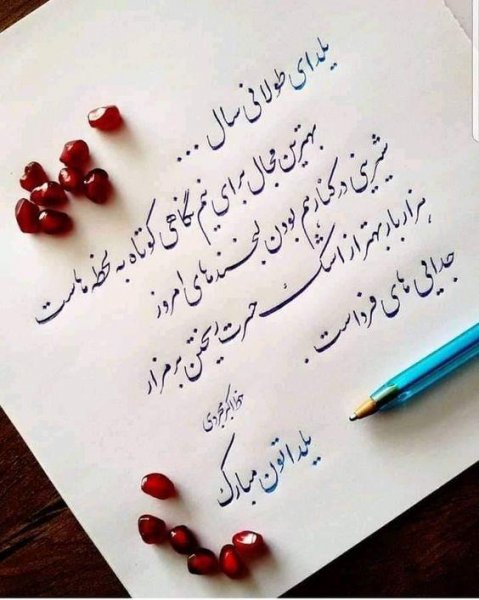 یلدای طولانی سال ...
بهترین مجال برای نیم نگاهی کوتاه به لحظه هاست
شیرینی در کنار هم بودن لبخندهای امروز
هزار بار بهتر از اشک حسرت ریختن بر مزار
جدایی های فرداست .
یلداتون مبارک